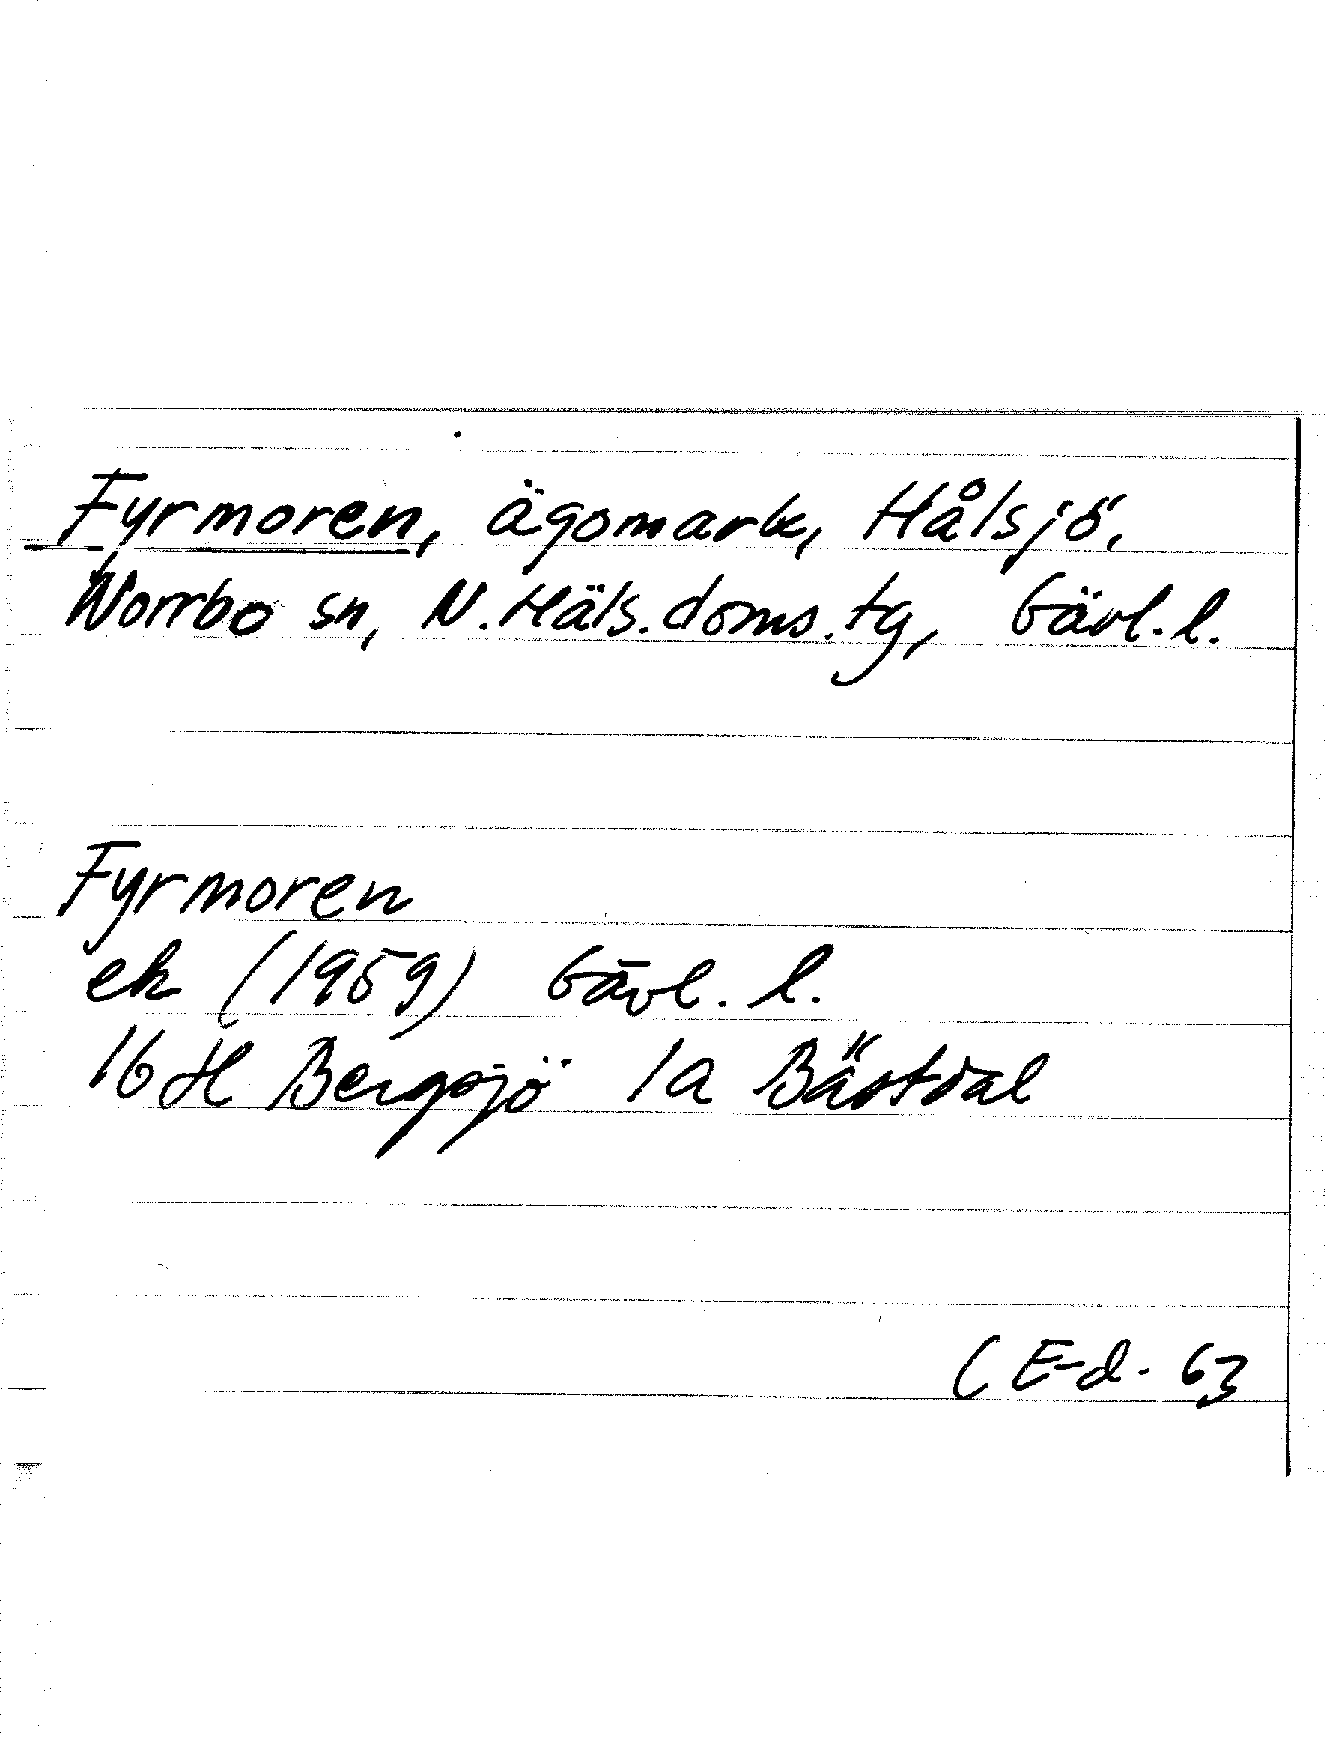 Fyrmoren, ägomark, Hålsjö,
Norrbo sn, N. Häls. doms. tg, Gävl. l.
Fyrmoren
ek (1959) Gävl. l.
16 H Bergsjö 1a Bästdal
C E-d. 63